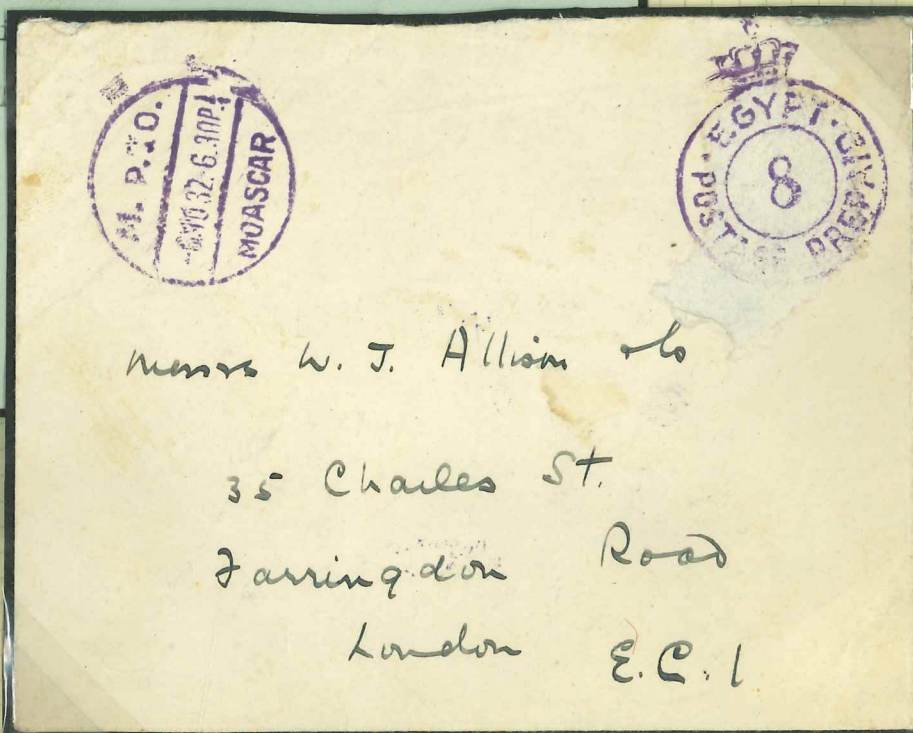 M. P. O.
6 NO 32 · 6.30P
MOASCAR
EGYPT
POSTAGE PREPAID
8
Messrs W. J. Allison & Co
35 Charles St.
Farringdon Road
London E.C.1